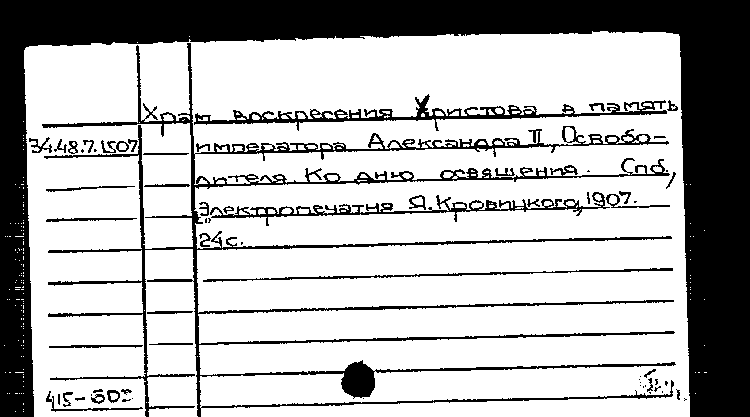 Храм Воскресения Христова в память
34.48.7.1507 императора Александра II, Освобо-
дителя. Ко дню освящения. Спб,
Электропечатня Я. Кровицкого, 1907.
24с.